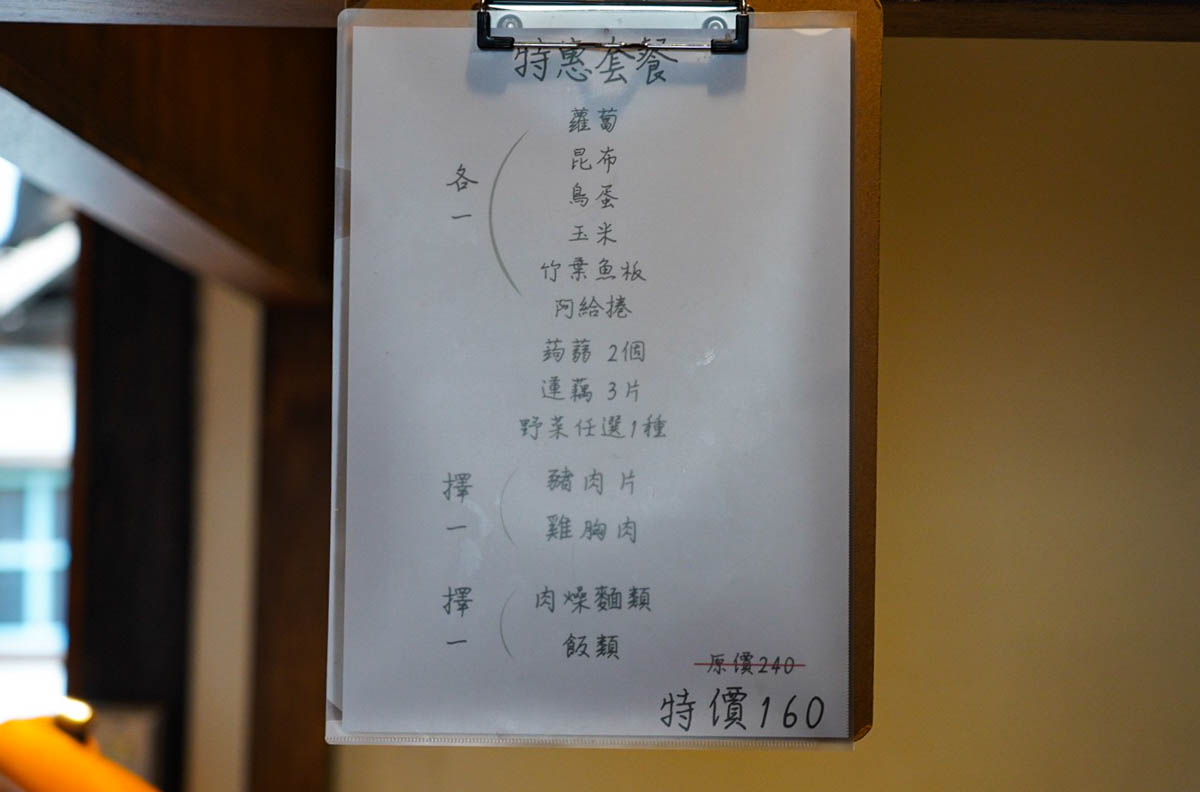 特惠套餐
各一
蘿蔔
昆布
鳥蛋
玉米
竹葉魚板
阿給捲
蒟蒻 2個
蓮藕 3片
野菜任選1種
擇一
豬肉片
雞胸肉
擇一
肉燥麵類
飯類
原價240
特價160